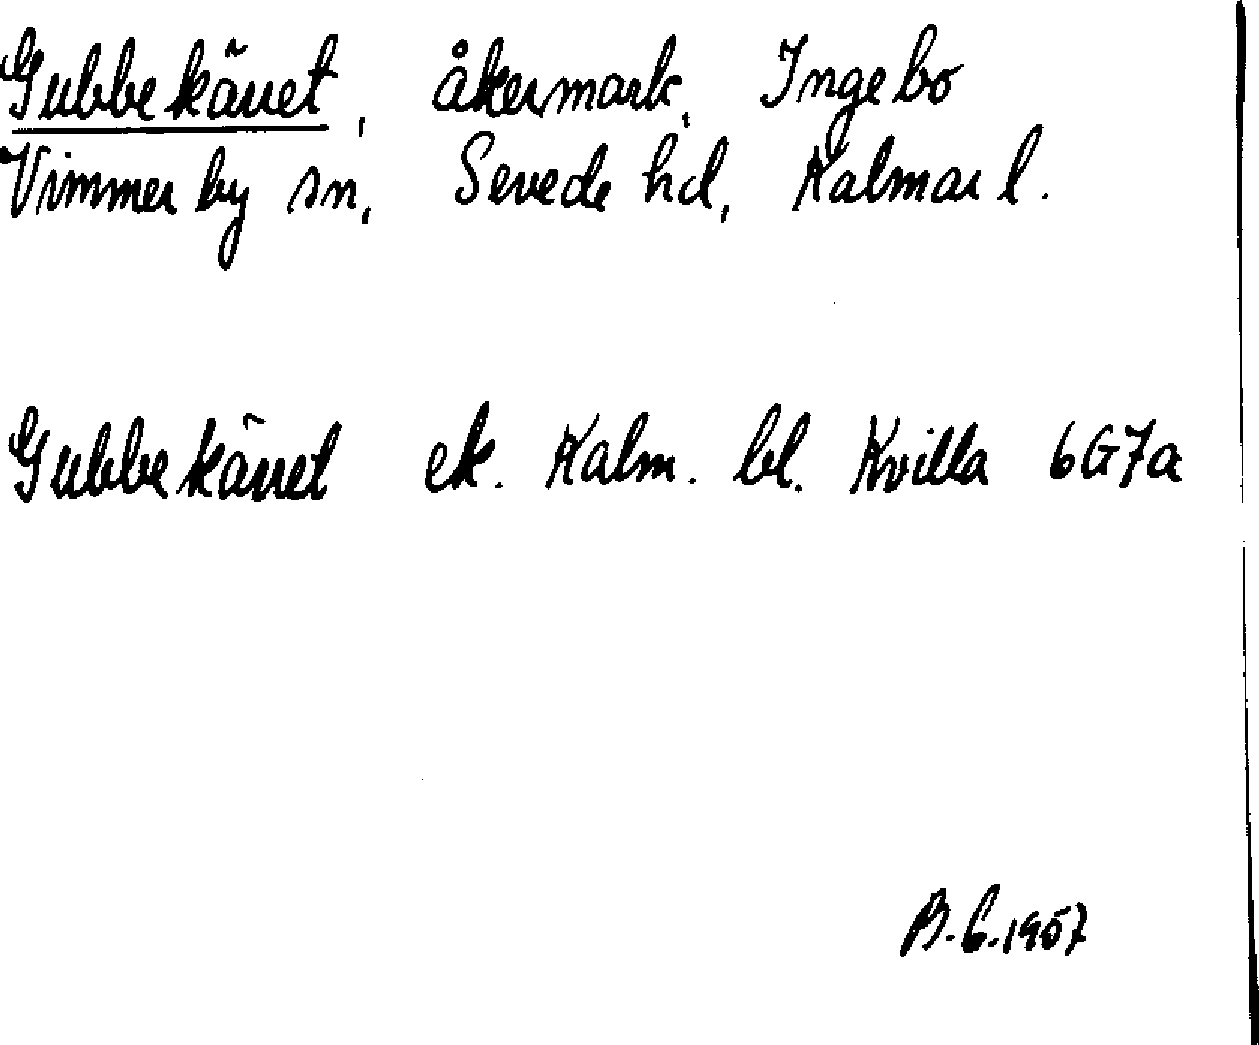 Gubbekäret, åkermark, Ingebo
Vimmerby sn, Sevede hd, Kalmar l.
Gubbekäret ek. Kalm. bl. Kvilla 6G7a
B.G. 1957